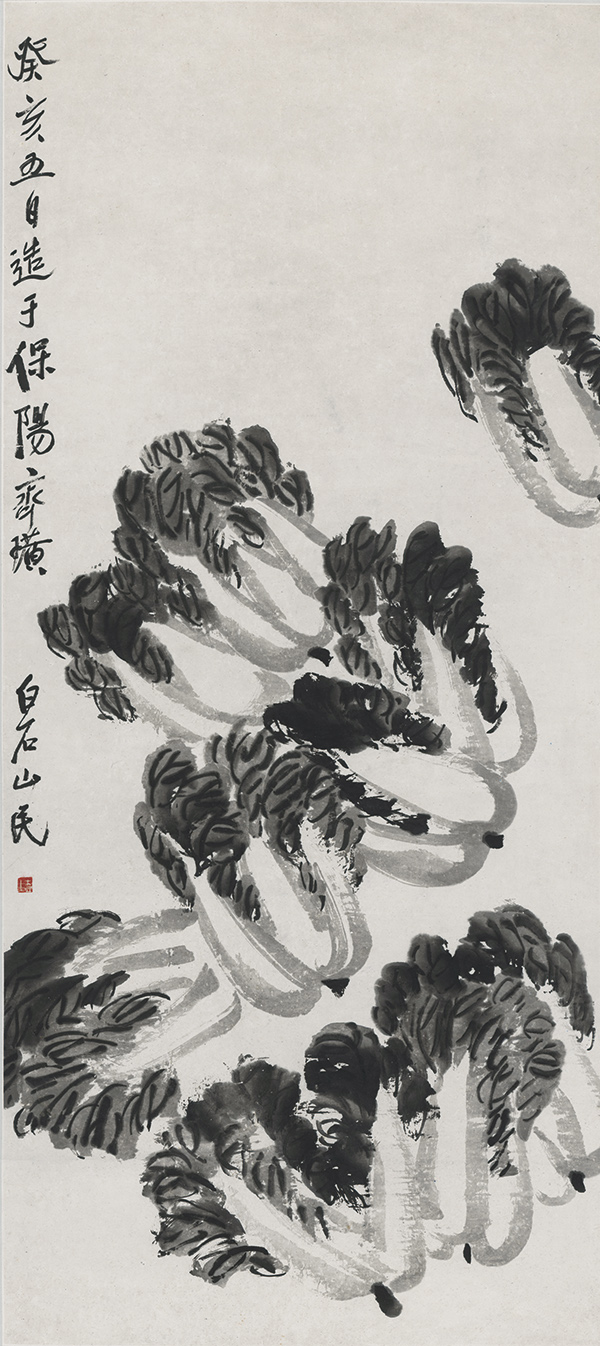 癸亥五日造于保陽齊璜
白石山民